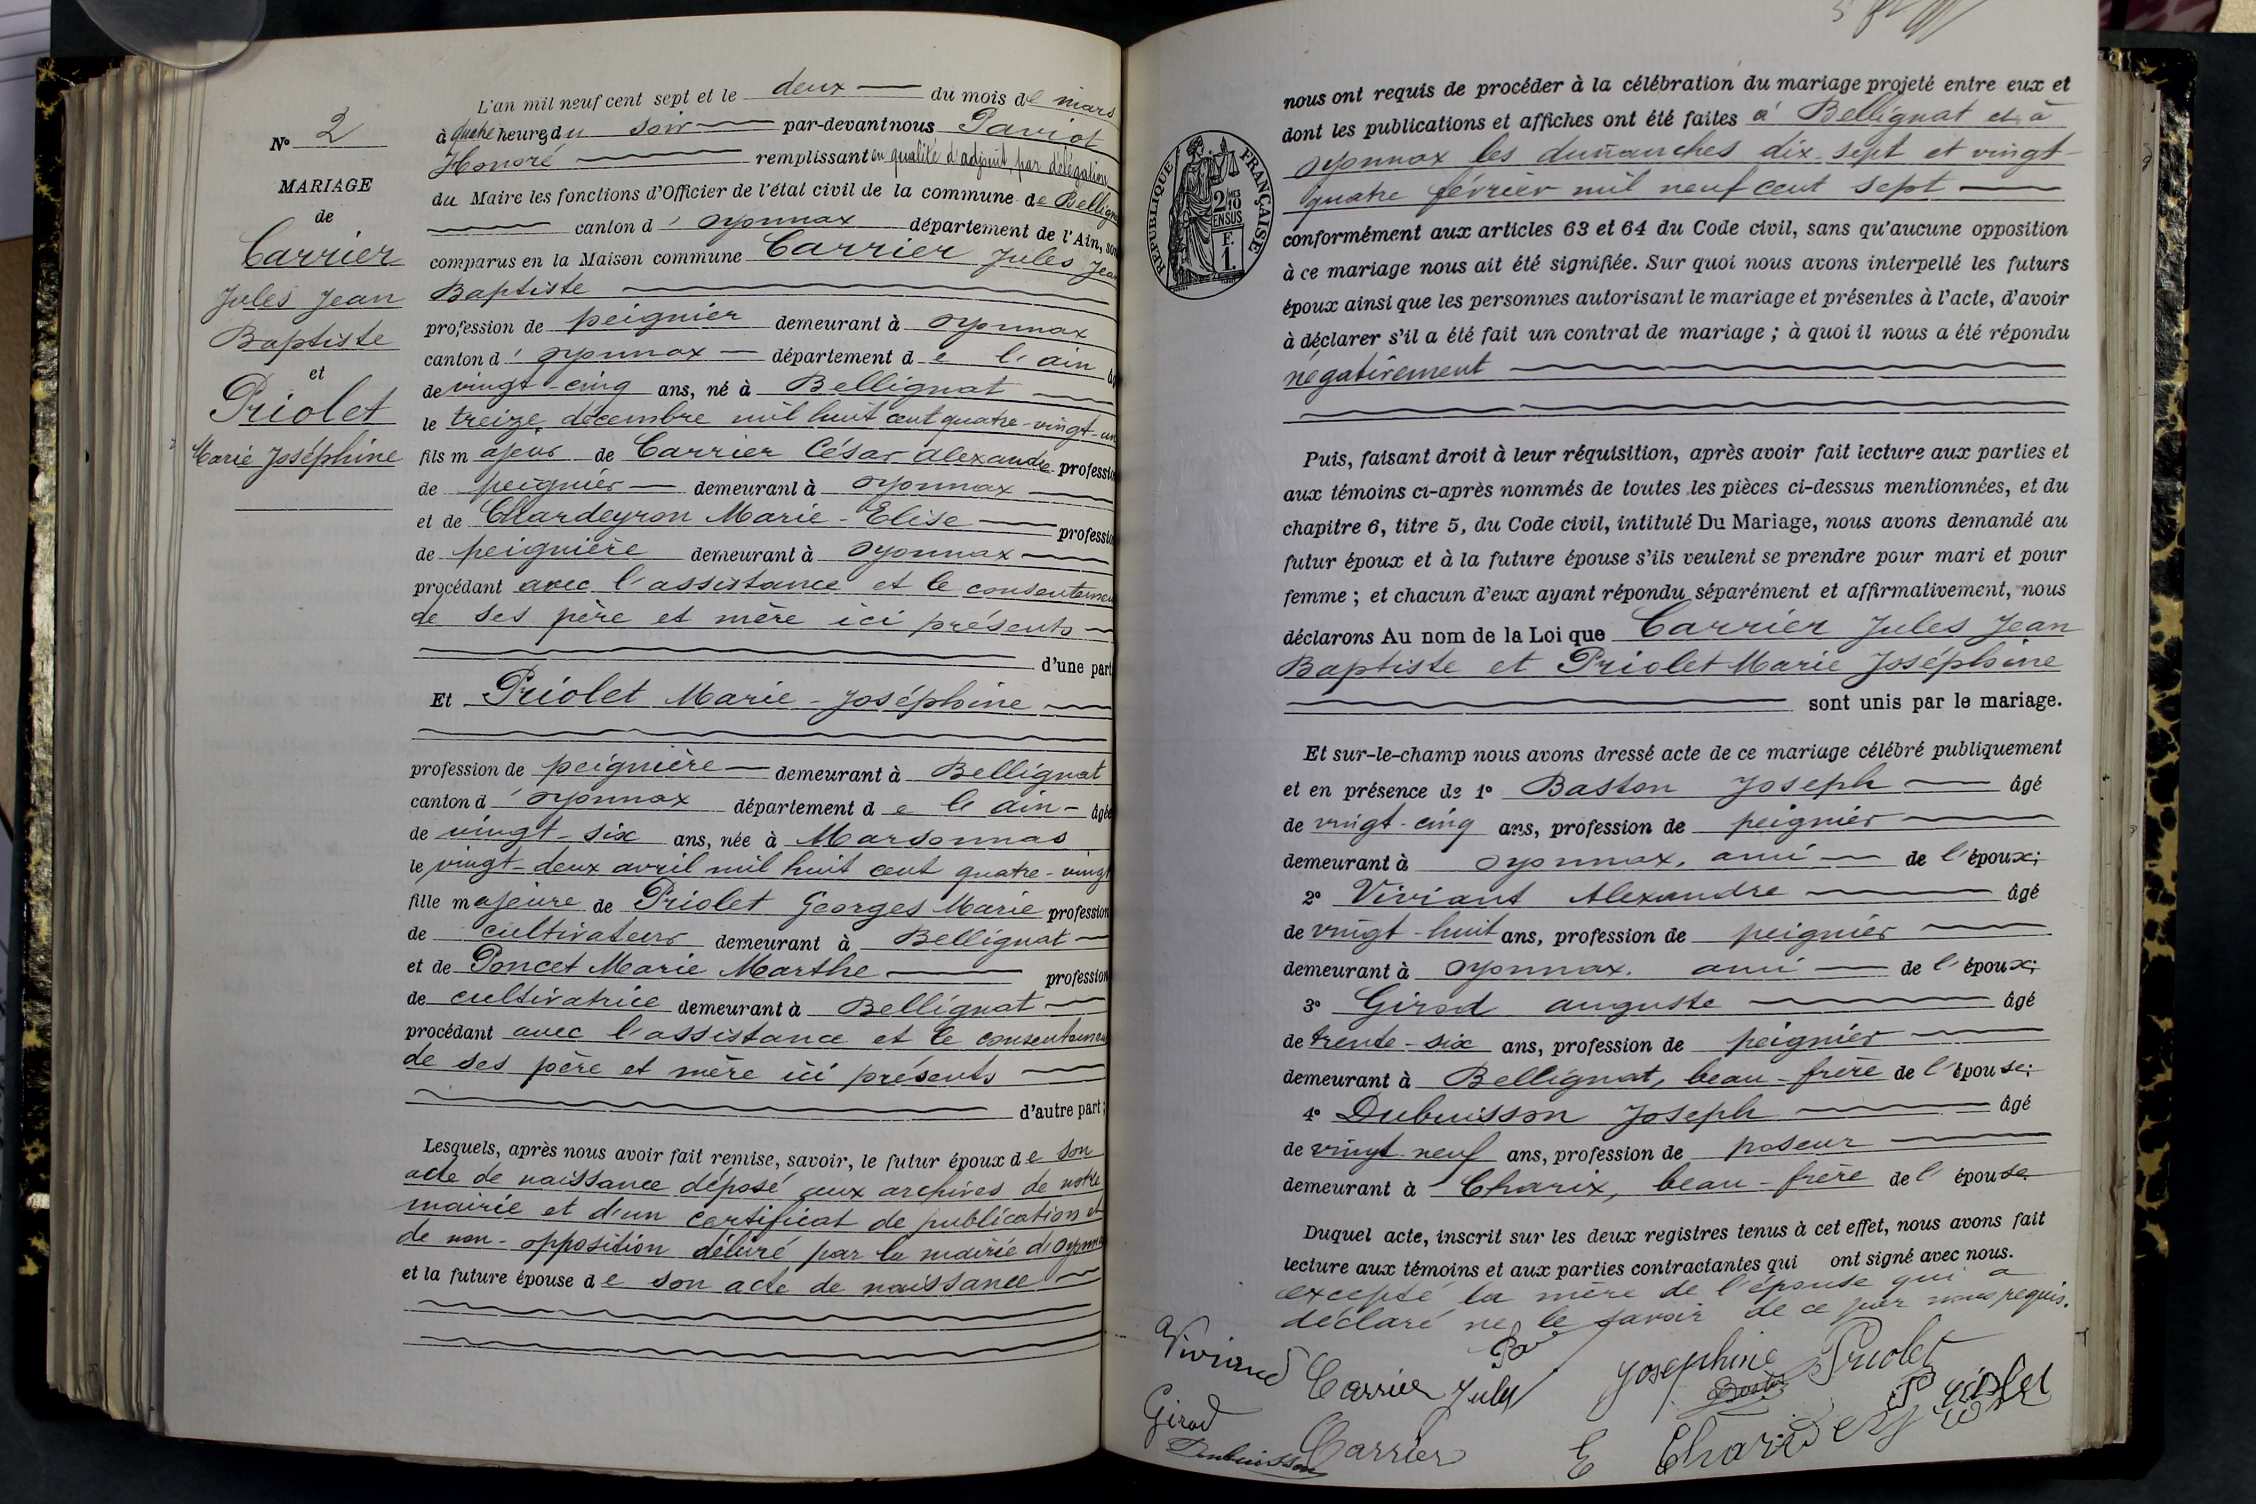 N° 2
MARIAGE
de
Carrier
Jules Jean
Baptiste
et
Priolet
Marie Joséphine
L'an mil neuf cent sept et le deux du mois de mars
à quatre heures du soir par-devant nous Paviot
Honoré remplissant en qualité d'adjoint, par délégation
du Maire les fonctions d'Officier de l'état civil de la commune de Bellignat
canton d'Oyonnax département de l'Ain, sont
comparus en la Maison commune Carrier Jules Jean
Baptiste
profession de peignier demeurant à Oyonnax
canton d'Oyonnax département de l'ain
de vingt-cinq ans, né à Bellignat
le treize décembre mil huit cent quatre-vingt-un
fils majeur de Carrier César Alexandre profession
de peignier demeurant à Oyonnax
et de Chardeyron Marie-Elise profession
de peignière demeurant à Oyonnax
procédant avec l'assistance et le consentement
de ses père et mère ici présents
d'une part
Et Priolet Marie-Joséphine
profession de peignière demeurant à Bellignat
canton d'Oyonnax département de l'ain âgée
de vingt-six ans, née à Marsonnas
le vingt-deux avril mil huit cent quatre-vingt
fille majeure de Priolet Georges Marie profession
de cultivateur demeurant à Bellignat
et de Poncet Marie Marthe profession
de cultivatrice demeurant à Bellignat
procédant avec l'assistance et le consentement
de ses père et mère ici présents
d'autre part;
Lesquels, après nous avoir fait remise, savoir, le futur époux de son
acte de naissance déposé aux archives de notre
mairie et d'un certificat de publication et
de non-opposition délivré par la mairie d'Oyonnax
et la future épouse de son acte de naissance
RÉPUBLIQUE FRANÇAISE
2/10 EN SUS
F. 1.
nous ont requis de procéder à la célébration du mariage projeté entre eux et
dont les publications et affiches ont été faites à Bellignat et à
Oyonnax les dimanches dix-sept et vingt
quatre février mil neuf cent sept
conformément aux articles 63 et 64 du Code civil, sans qu'aucune opposition
à ce mariage nous ait été signifiée. Sur quoi nous avons interpellé les futurs
époux ainsi que les personnes autorisant le mariage et présentes à l'acte, d'avoir
à déclarer s'il a été fait un contrat de mariage ; à quoi il nous a été répondu
négativement
Puis, faisant droit à leur réquisition, après avoir fait lecture aux parties et
aux témoins ci-après nommés de toutes les pièces ci-dessus mentionnées, et du
chapitre 6, titre 5, du Code civil, intitulé Du Mariage, nous avons demandé au
futur époux et à la future épouse s'ils veulent se prendre pour mari et pour
femme ; et chacun d'eux ayant répondu séparément et affirmativement, nous
déclarons Au nom de la Loi que Carrier Jules Jean
Baptiste et Priolet Marie Joséphine
sont unis par le mariage.
Et sur-le-champ nous avons dressé acte de ce mariage célébré publiquement
et en présence de 1° Baston Joseph âgé
de vingt-cinq ans, profession de peignier
demeurant à Oyonnax, ami de l'époux;
2° Viviant Alexandre âgé
de vingt-huit ans, profession de peignier
demeurant à Oyonnax. ami de l'époux;
3° Girod auguste âgé
de trente-six ans, profession de peignier
demeurant à Bellignat, beau-frère de l'épouse;
4° Dubuisson Joseph âgé
de vingt-neuf ans, profession de poseur
demeurant à Charix, beau-frère de l'épouse.
Duquel acte, inscrit sur les deux registres tenus à cet effet, nous avons fait
lecture aux témoins et aux parties contractantes qui ont signé avec nous.
excepté la mère de l'épouse qui a
déclaré ne le savoir de ce par nous requis.
Carrier Jules
Josephine Priolet
Priolet
Girod
Dubuisson
Carrier
E Chardeyron